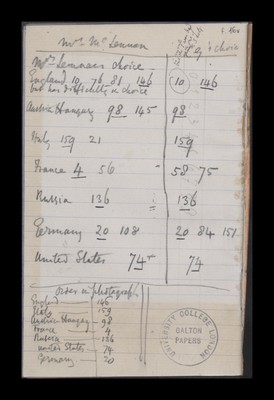 Mrs McLennan
G's choice
Mrs McLennan's choice
England 10, 76 81 146 (10) 146
but has difficulty in choice
Austria Hungary 98 145 98
Italy 159 21 159
France 4 56 58 75
Russia 136 136
Germany 20 108 20 84 151
United States 74 74
Order in photograph
England — 146
Italy — 159
Austria Hungary — 98
France — 4
Russia — 136
United States — 74
Germany — 20
UNIVERSITY COLLEGE LONDON
GALTON
PAPERS